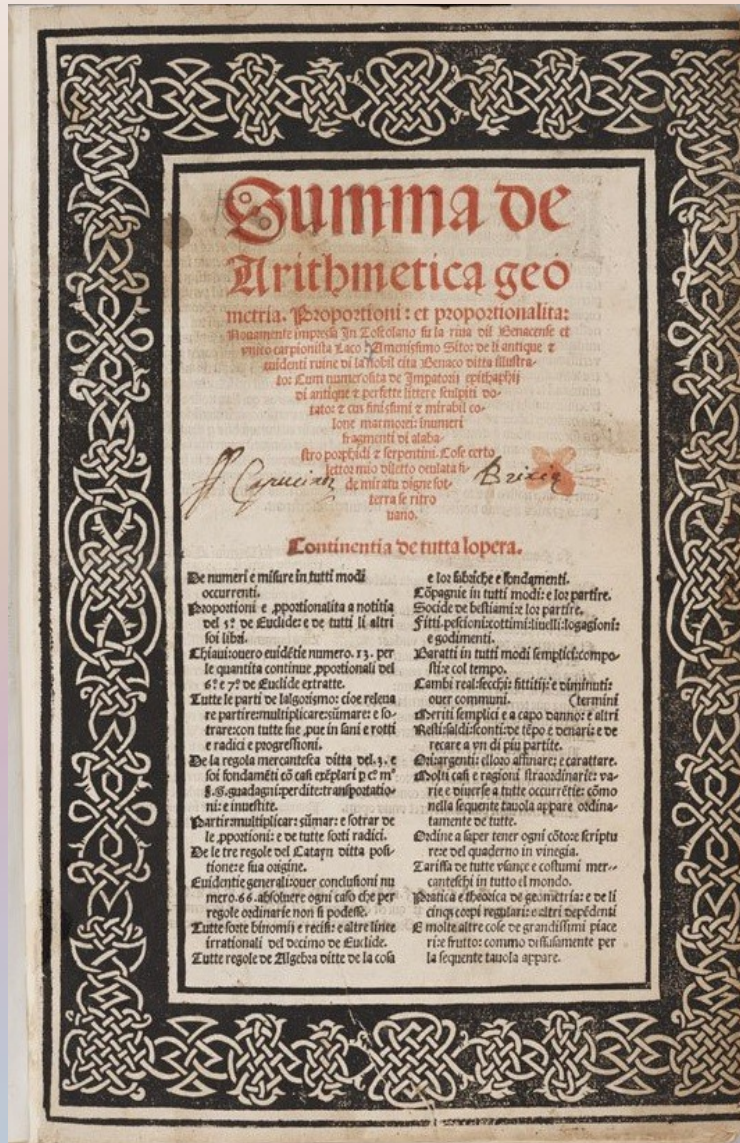 Summa de
Arithmetica geo
metria. Proportioni: et proportionalita:
Nouamente impressa In Toscolano su la riua dil Benacense et
vnico carpionista Laco: Amenissimo Sito: de li antique &
euidenti ruine di la nobil cita Benaco ditta illustra-
to: Cum numerosita de Impatorij epithaphij
di antique & perfette littere sculpiti do-
tato: & cus finissimi & mirabil co-
lone marmorei: inumeri
fragmenti di alaba-
stro porphidi & serpentini. Cose certo
lettor mio diletto oculata fi-
de miratu digne sot-
terra se ritro
uano.
Brixie
Continentia de tutta lopera.
De numeri e misure in tutti modi
occurrenti.
Proportioni e ꝓportionalita a notitia
del 5º de Euclide: e de tutti li altri
soi libri.
Chiaui: ouero euidẽtie numero. 13. per
le quantita continue ꝓportionali del
6º e 7º de Euclide extratte.
Tutte le parti de lalgorismo: cioe releua
re partire: multiplicare: sũmare: e so-
trare: con tutte sue ꝓue in sani e rotti
e radici e progressioni.
De la regola mercantesca ditta del .3. e
soi fondamẽti cõ casi exẽplari ꝑ cº mº
guadagni: perdite: transportatio-
ni: e inuestite.
Partir: multiplicar: sũmar: e sotrar de
le ꝓportioni: e de tutte sorti radici.
De le tre regole del Catayn ditta posi-
tione: e sua origine.
Euidentie generali: ouer conclusioni nu
mero .66. absoluere ogni caso che per
regole ordinarie non si podesse.
Tutte sorte binomij e recisi: e altre linee
irrationali del decimo de Euclide.
Tutte regole de Algebra ditte de la cosa
e lor fabriche e fondamenti.
Cõpagnie in tutti modi: e lor partire.
Socide de bestiami: e lor partire.
Fitti: pescioni: cottimi: liuelli: logagioni:
e godimenti.
Baratti in tutti modi semplici: compo-
sti: e col tempo.
Cambi real: secchi: fittitij: e diminuti:
ouer communi. (termini
Meriti semplici e a capo danno: e altri
Resti: saldi: sconti: de tẽpo e denari: e de
recare a vn di piu partite.
Ori: argenti: e lloro affinare: e carattare.
Molti casi e ragioni straordinarie: va-
rie e diuerse a tutte occurrẽtie: cõmo
nella sequente tauola appare ordina-
tamente de tutte.
Ordine a saper tener ogni cõto e scriptu
re: e del quaderno in vinegia.
Tariffa de tutte vsançe e costumi mer-
canteschi in tutto el mondo.
Pratica e theorica de geometria: e de li
cinqȝ corpi regulari: e altri depẽdenti
E molte altre cose de grandissimi piace
ri: e frutto: commo diffusamente per
la sequente tauola appare.